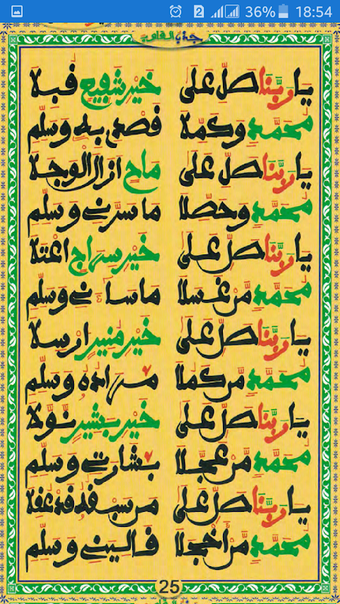 36% 18:54
يا ربنا صل على خير شفيع قبلا
محمد وكملا قصدي به وسلم
يا ربنا صل على ماح ازال الوجلا
محمد وحصلا ما سرني وسلم
يا ربنا صل على خير سراج اعتلا
محمد من غسلا ما ساءني وسلم
يا ربنا صل على خير منير ارسلا
محمد من كملا مراده وسلم
يا ربنا صل على خير بشير
محمد من عجلا بشارتي وسلم
يا ربنا صل على
محمد من اخجلا قاليني وسلم
25